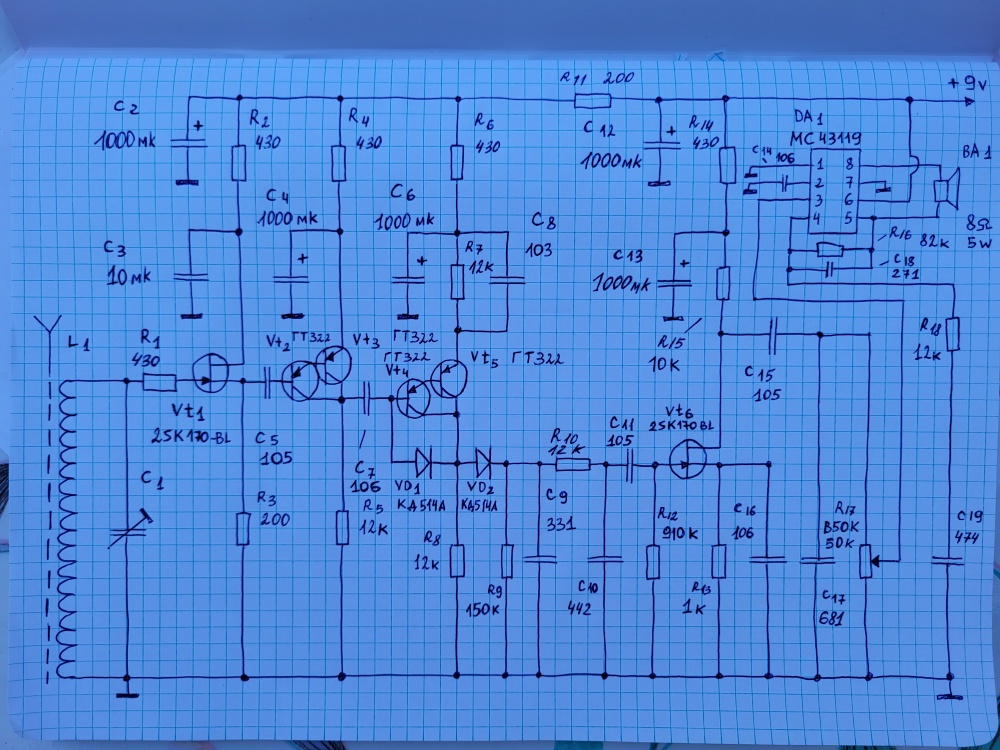 R11 200
+9v
C2
1000мк
R2
430
R4
430
R6
430
C12
1000мк
R14
430
DA1
MC43119
C14
106
1 8
2 7
3 6
4 5
BA1
8Ω
5W
R16
82к
C18
271
C3
10мк
C4
1000мк
C6
1000мк
C8
103
R7
12к
C13
1000мк
R15
10к
R18
12к
L1
R1
430
Vt1
2SK170-BL
Vt2
ГТ322
Vt3
ГТ322
ГТ322
Vt4
Vt5 ГТ322
C15
105
C5
105
C7
106
VD1
КД514А
VD2
КД514А
R10
12к
C11
105
Vt6
2SK170-BL
C1
R3
200
R5
12к
R8
12к
R9
150к
C9
331
C10
442
R12
910к
R13
1к
C16
106
R17
B50K
50K
C17
681
C19
474